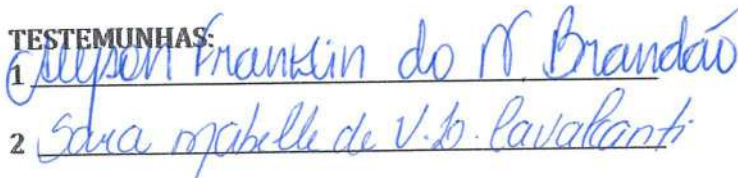 TESTEMUNHAS:
1 Alyson Franklin do N Brandão
2 Sara mabelle de V. B. Cavalcanti